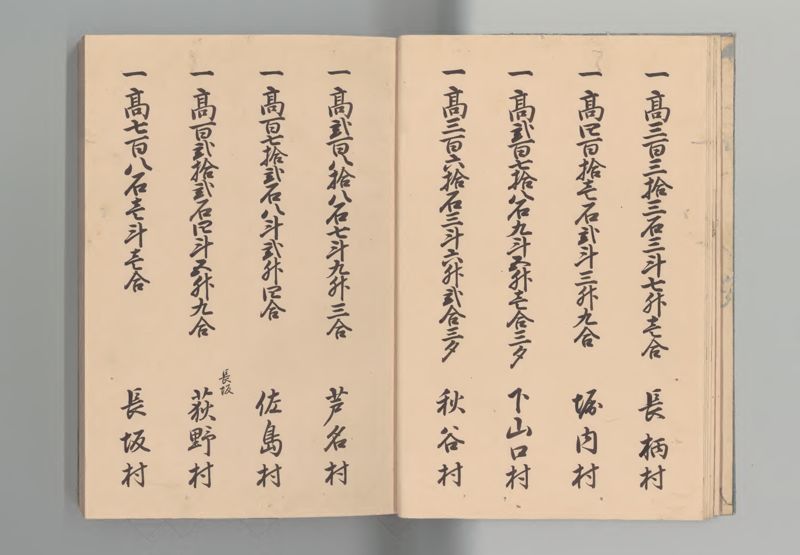 一高三百三拾三石三斗七升壱合 長柄村
一高四百拾壱石弐斗三升九合 堀内村
一高弐百七拾八石九斗五升壱合三夕 下山口村
一高三百六拾石三斗六升弐合三夕 秋谷村
一高弐百八拾八石七斗九升三合 芦名村
一高百七拾弐石八斗弐升四合 佐島村
長坂
一高百弐拾弐石四斗五升九合 荻野村
一高七百八石壱斗壱合 長坂村